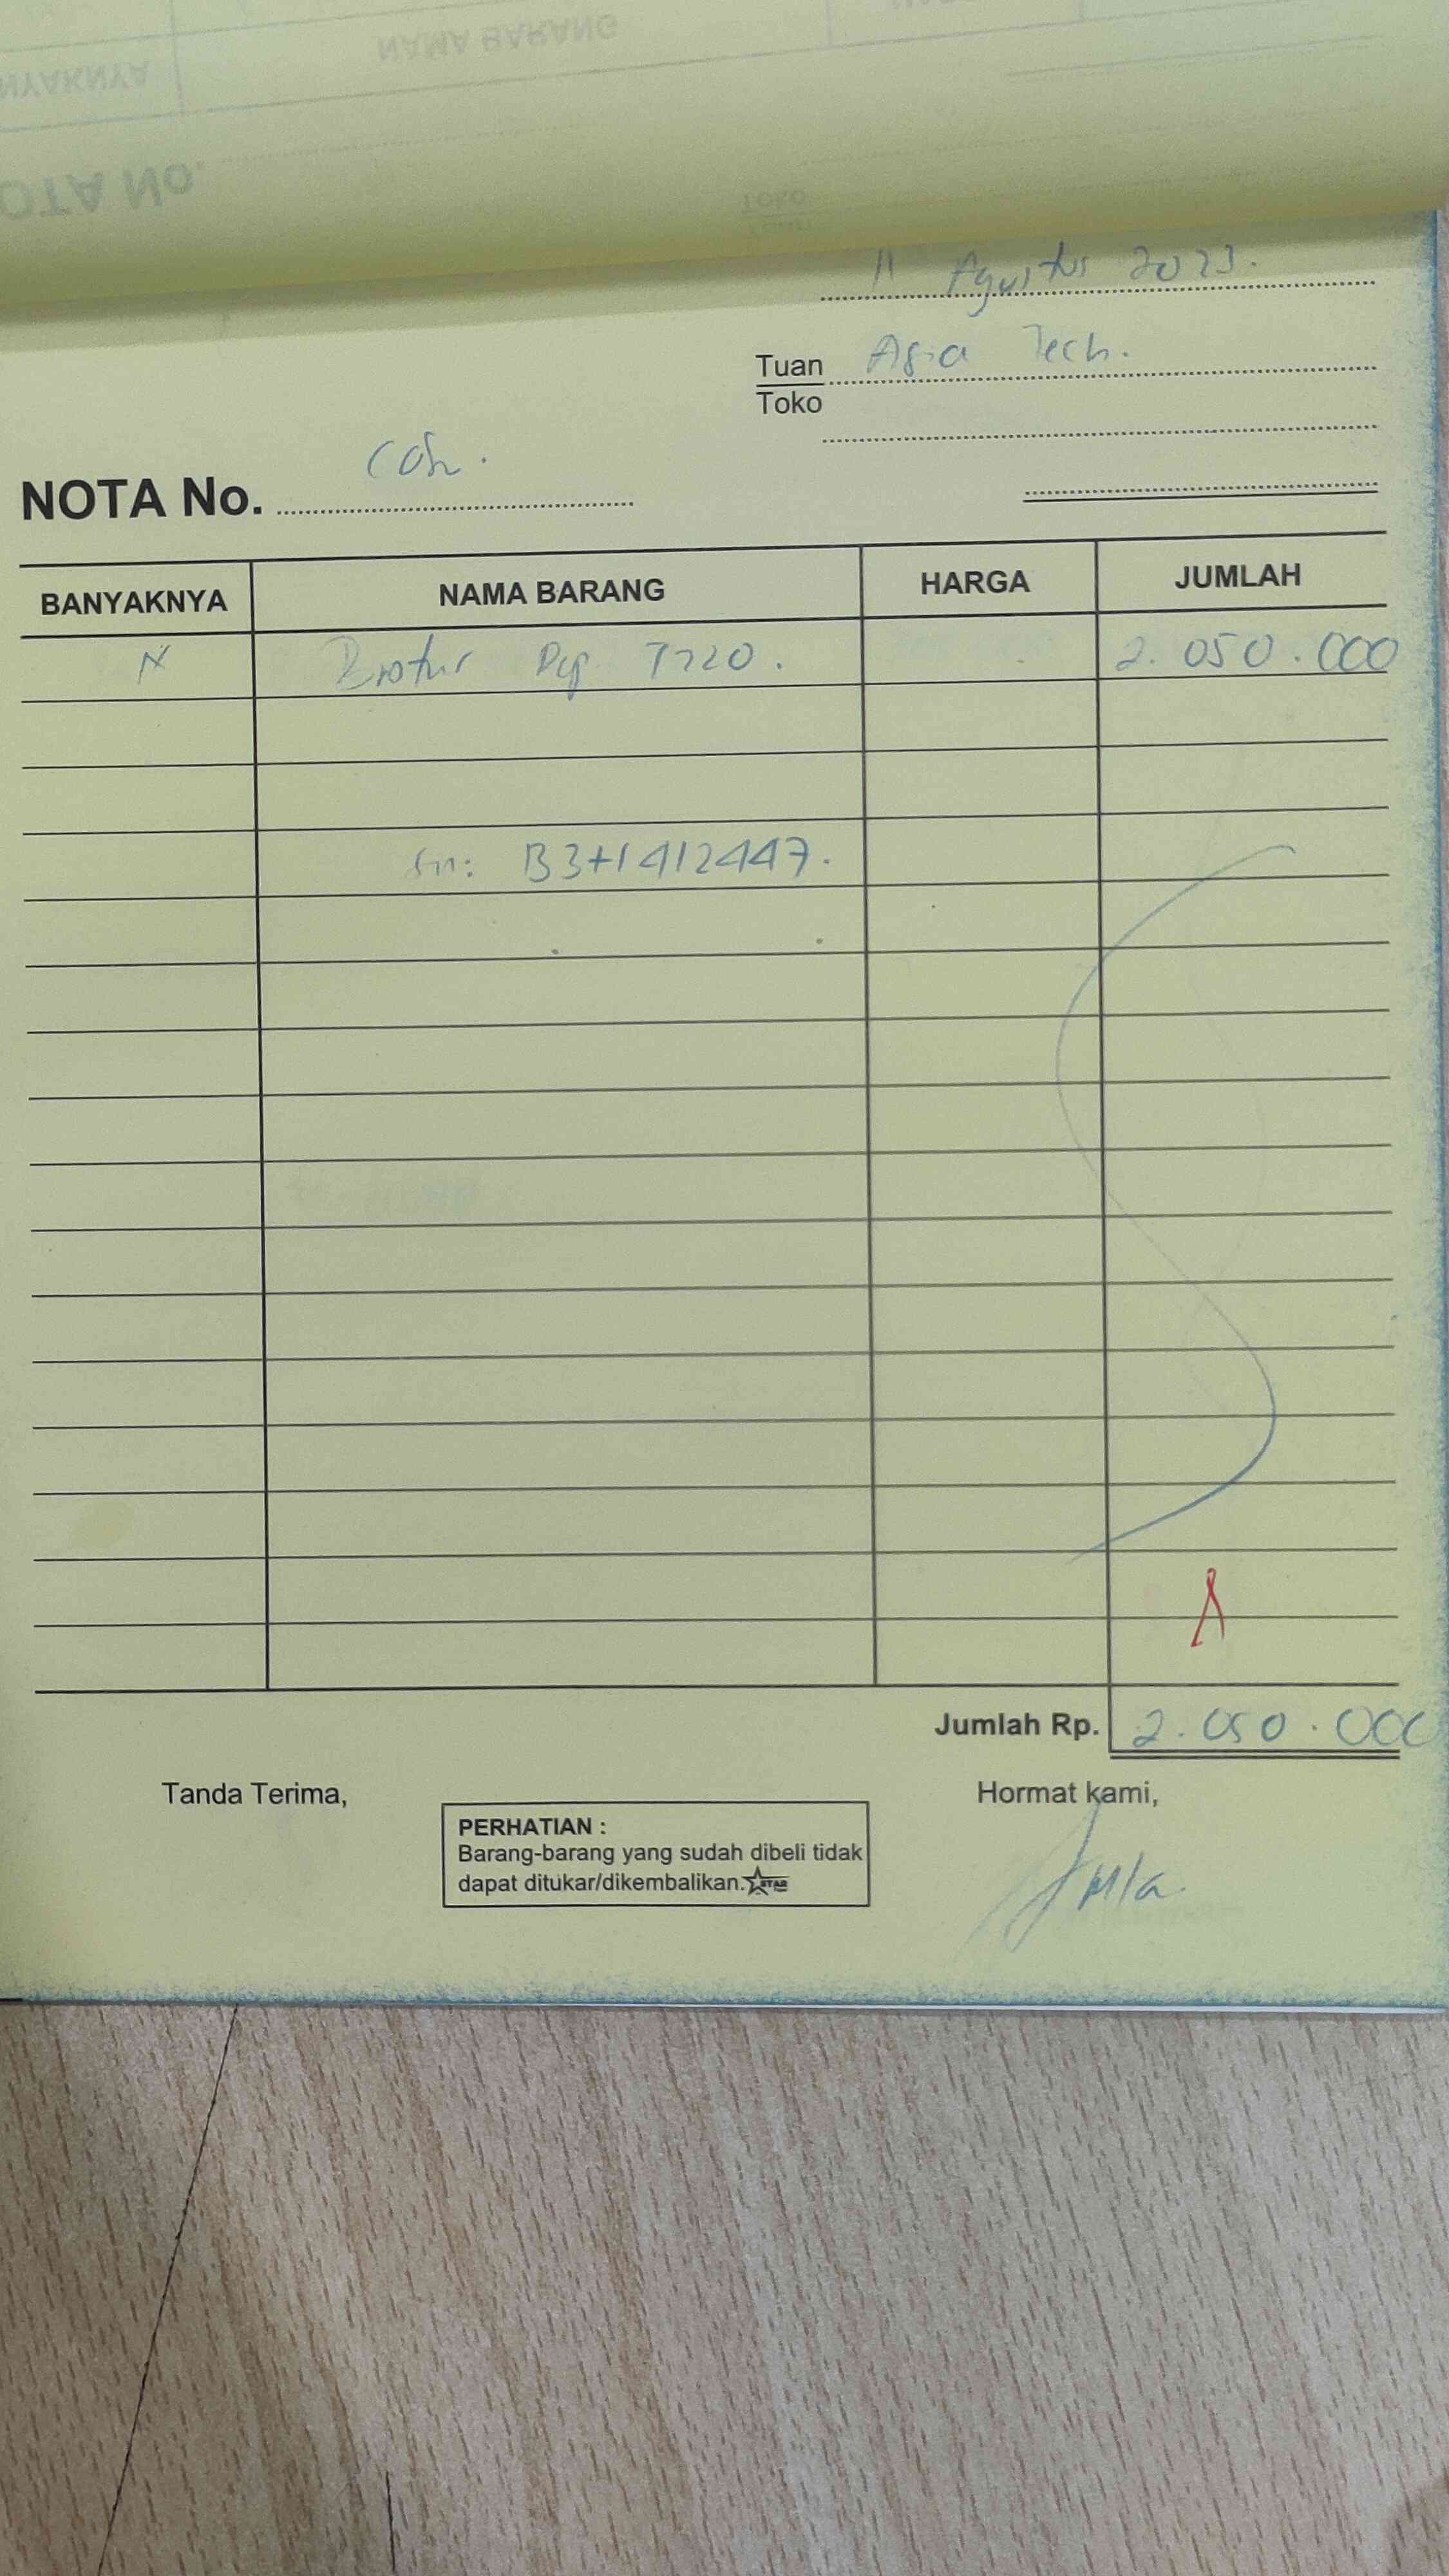 NAMA BARANG
NYAKNYA
OTA No.
Toko
11 Agustus 2023.
Tuan Asia Tech.
Toko
NOTA No. Cash.
BANYAKNYA NAMA BARANG HARGA JUMLAH
Brother Dcp T720. 2.050.000
sn: B3+1412447.
Jumlah Rp. 2.050.000
Tanda Terima, Hormat kami,
PERHATIAN :
Barang-barang yang sudah dibeli tidak
dapat ditukar/dikembalikan. STAR